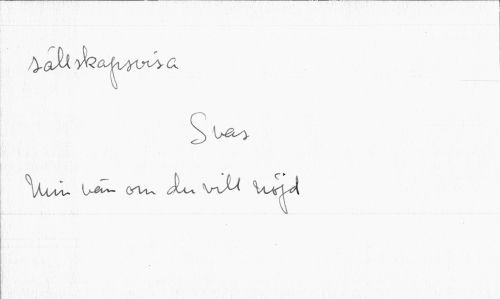 sällskapsvisa
Svar
Min vän om du vill nöjd